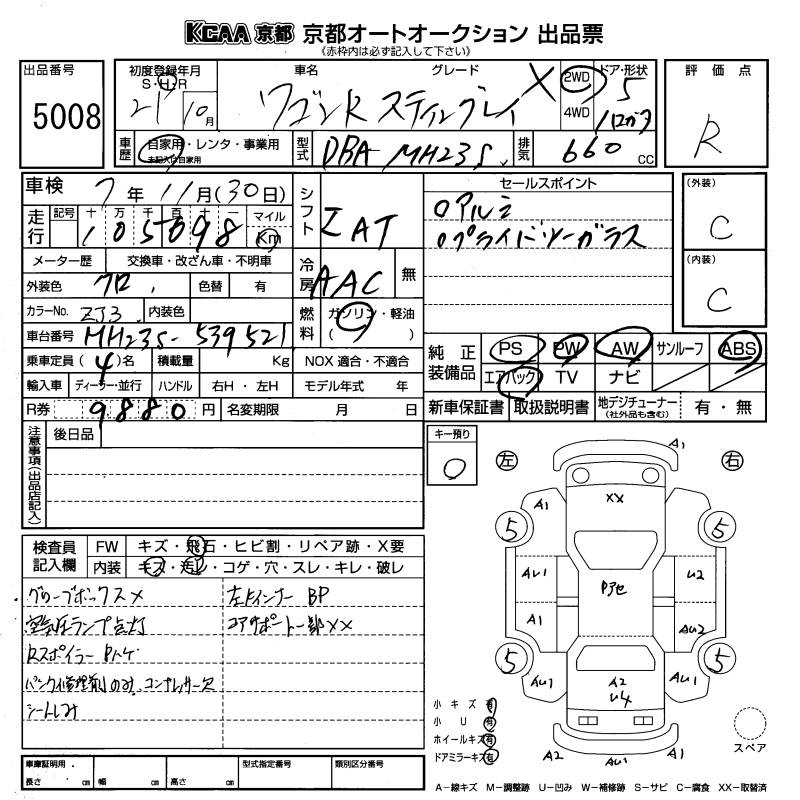 KCAA 京都 京都オートオークション 出品票
(赤枠内は必ず記入して下さい)
出品番号
5008
初度登録年月
S・H・R
21 10月
車名 グレード
ワゴンR スティングレイ X
2WD
4WD
ドア・形状
5
評価点
R
車歴
自家用・レンタ・事業用
未記入は自家用
型式
DBA-MH23S
排気
660 CC
車検 7年11月(30日)
走行
記号 十 万 千 百 十 一 マイル
105098 Km
メーター歴 交換車・改ざん車・不明車
外装色 クロ 色替 有
カラーNo. ZJ3 内装色
車台番号 MH23S-539521
乗車定員 (4)名 積載量 Kg
輸入車 ディーラー・並行 ハンドル 右H・左H
R券 9880円 名変期限 月 日
シフト IAT
冷房 AAC 無
燃料 ガソリン・軽油
( )
NOX 適合・不適合
モデル年式 年
セールスポイント
○アルミ
○プライバシーガラス
(外装)
C
(内装)
C
純正装備品
PS PW AW サンルーフ ABS
エアバック TV ナビ
新車保証書 取扱説明書 地デジチューナー(社外品も含む) 有・無
注意事項(出品店記入)
後日品
キー預り
0
左 右
検査員記入欄
FW キズ・飛石・ヒビ割・リペア跡・X要
内装 キズ・汚レ・コゲ・穴・スレ・キレ・破レ
グローブボックス×
空気圧ランプ点灯
Rスポイラー Pハゲ
パンク修理剤のみ、コンプレッサー欠
シートしみ
左上インナー BP
コアサポート一部XX
A1
A1 XX
5 5
AU1 Pアセ U2
A1 AU2
5 5
AU1 A2 AU1
U4
A2 AU1 A1
小キズ 有
小U 有
ホイールキズ 有
ドアミラーキズ 有
スペア
車庫証明用
長さ cm 幅 cm 高さ cm
型式指定番号
類別区分番号
A－線キズ M－調整跡 U－凹み W－補修跡 S－サビ C－腐食 XX－取替済